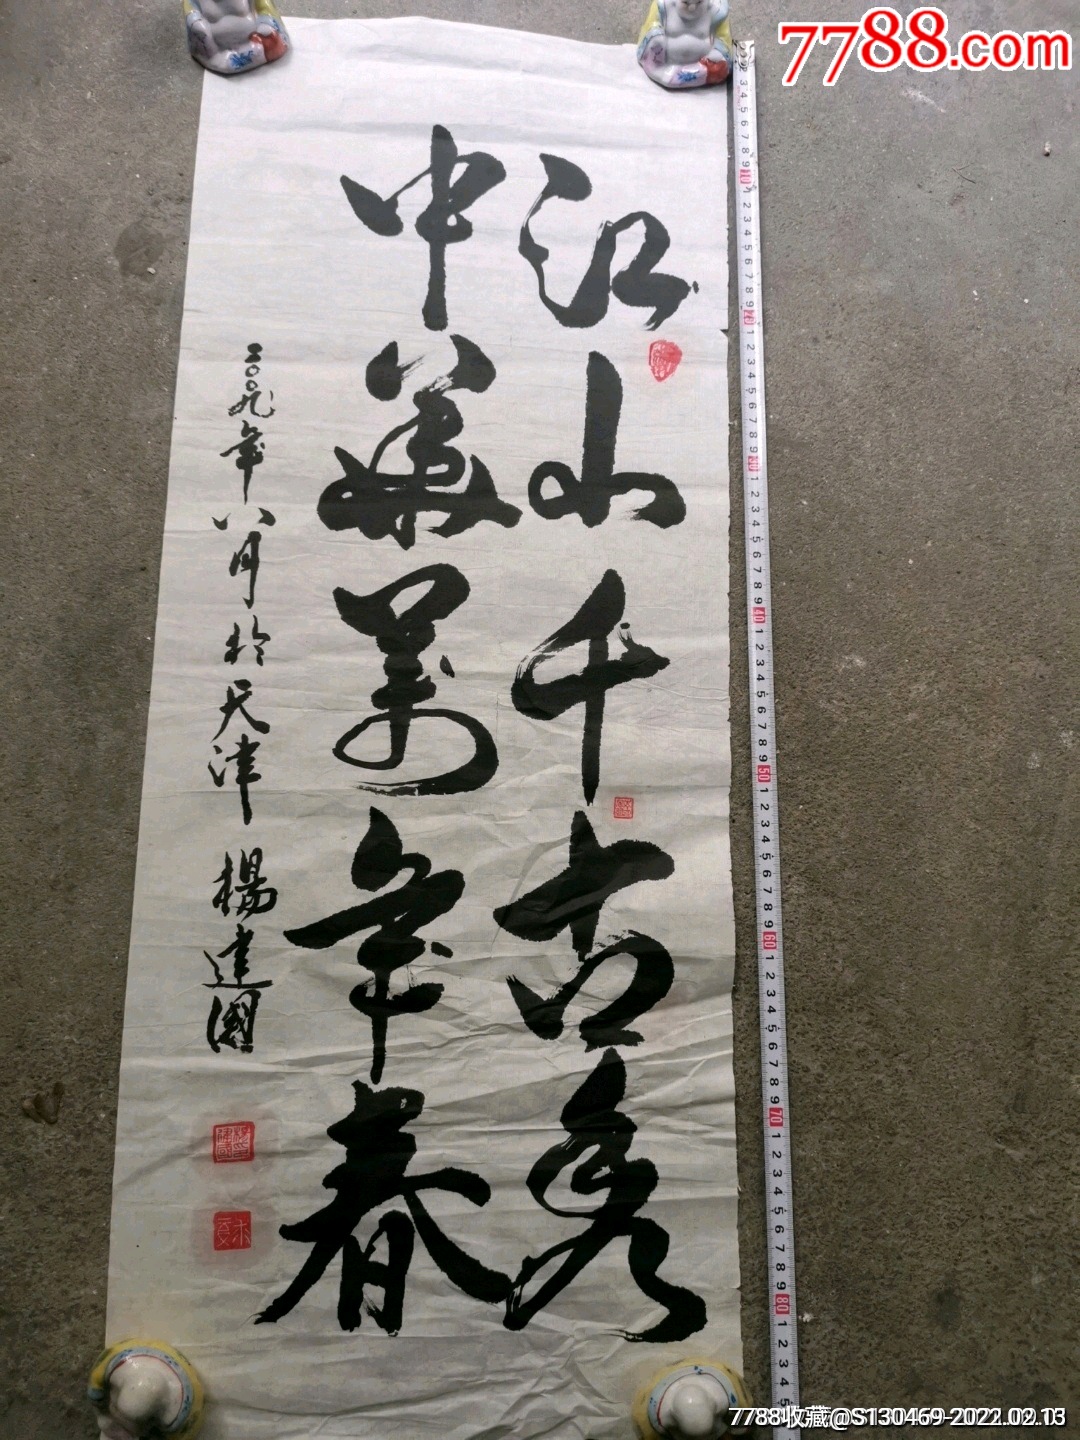 7788.com
江山千古秀
中華萬年春
二〇〇九年八月於天津 楊建國
7788收藏@S130469-2022.02.13